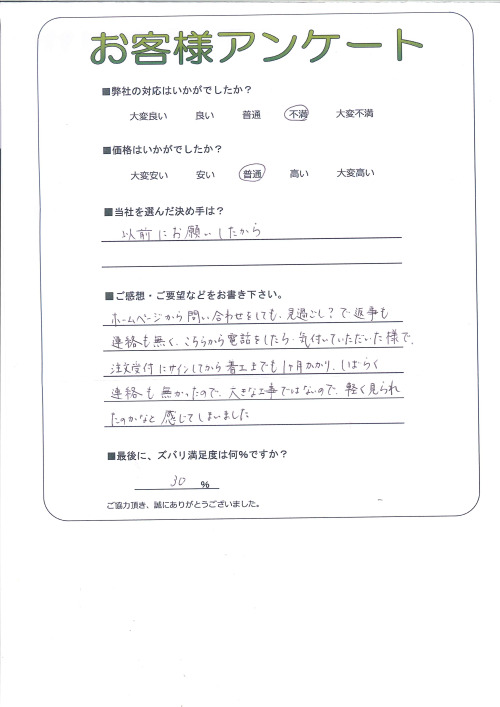 お客様アンケート
■弊社の対応はいかがでしたか？
大変良い 良い 普通 不満 大変不満
■価格はいかがでしたか？
大変安い 安い 普通 高い 大変高い
■当社を選んだ決め手は？
以前にお願いしたから
■ご感想・ご要望などをお書き下さい。
ホームページから問い合わせをしても、見過ごし？で返事も
連絡も無く、こちらから電話をしたら、気付いていただいた様で、
注文受付にサインしてから着工までも1ヶ月かかり、しばらく
連絡も無かったので、大きな工事ではないので、軽く見られ
たのかなと感じてしまいました
■最後に、ズバリ満足度は何％ですか？
30 %
ご協力頂き、誠にありがとうございました。